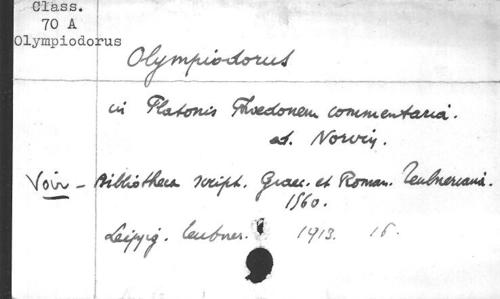 Class.
70 A
Olympiodorus
Olympiodorus
in Platonis Phaedonem commentaria.
ed. Norvin.
Voir - Bibliotheca script. Graec. et Roman. Teubneriana.
1560.
Leipzig. Teubner. 1913. 16.